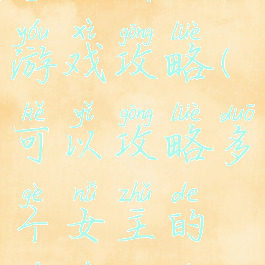 yóu xì gōng lüè
游戏攻略(
kě yǐ gōng lüè duō
可以攻略多
gè nǚ zhǔ de
个女主的